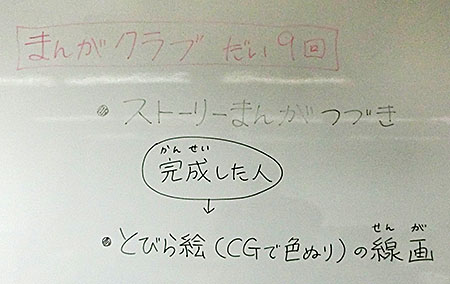 まんがクラブ だい9回
・ストーリーまんがつづき
かんせい
完成した人
↓
せんが
・とびら絵(CGで色ぬり)の線画